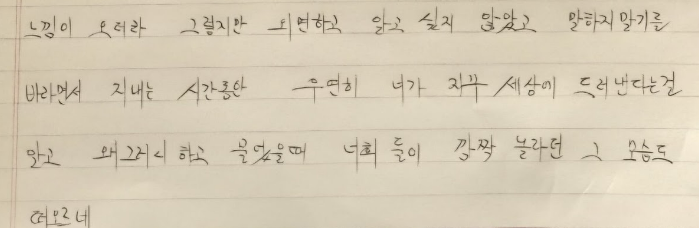 느낌이 오더라 그렇지만 외면하고 알고 싶지 않았고 말하지말기를
바라면서 지내는 시간동안 우연히 너가 자꾸 세상에 드러낸다는걸
알고 왜그러니 하고 물었을때 너희 둘이 깜짝 놀라던 그 모습도
떠오르네